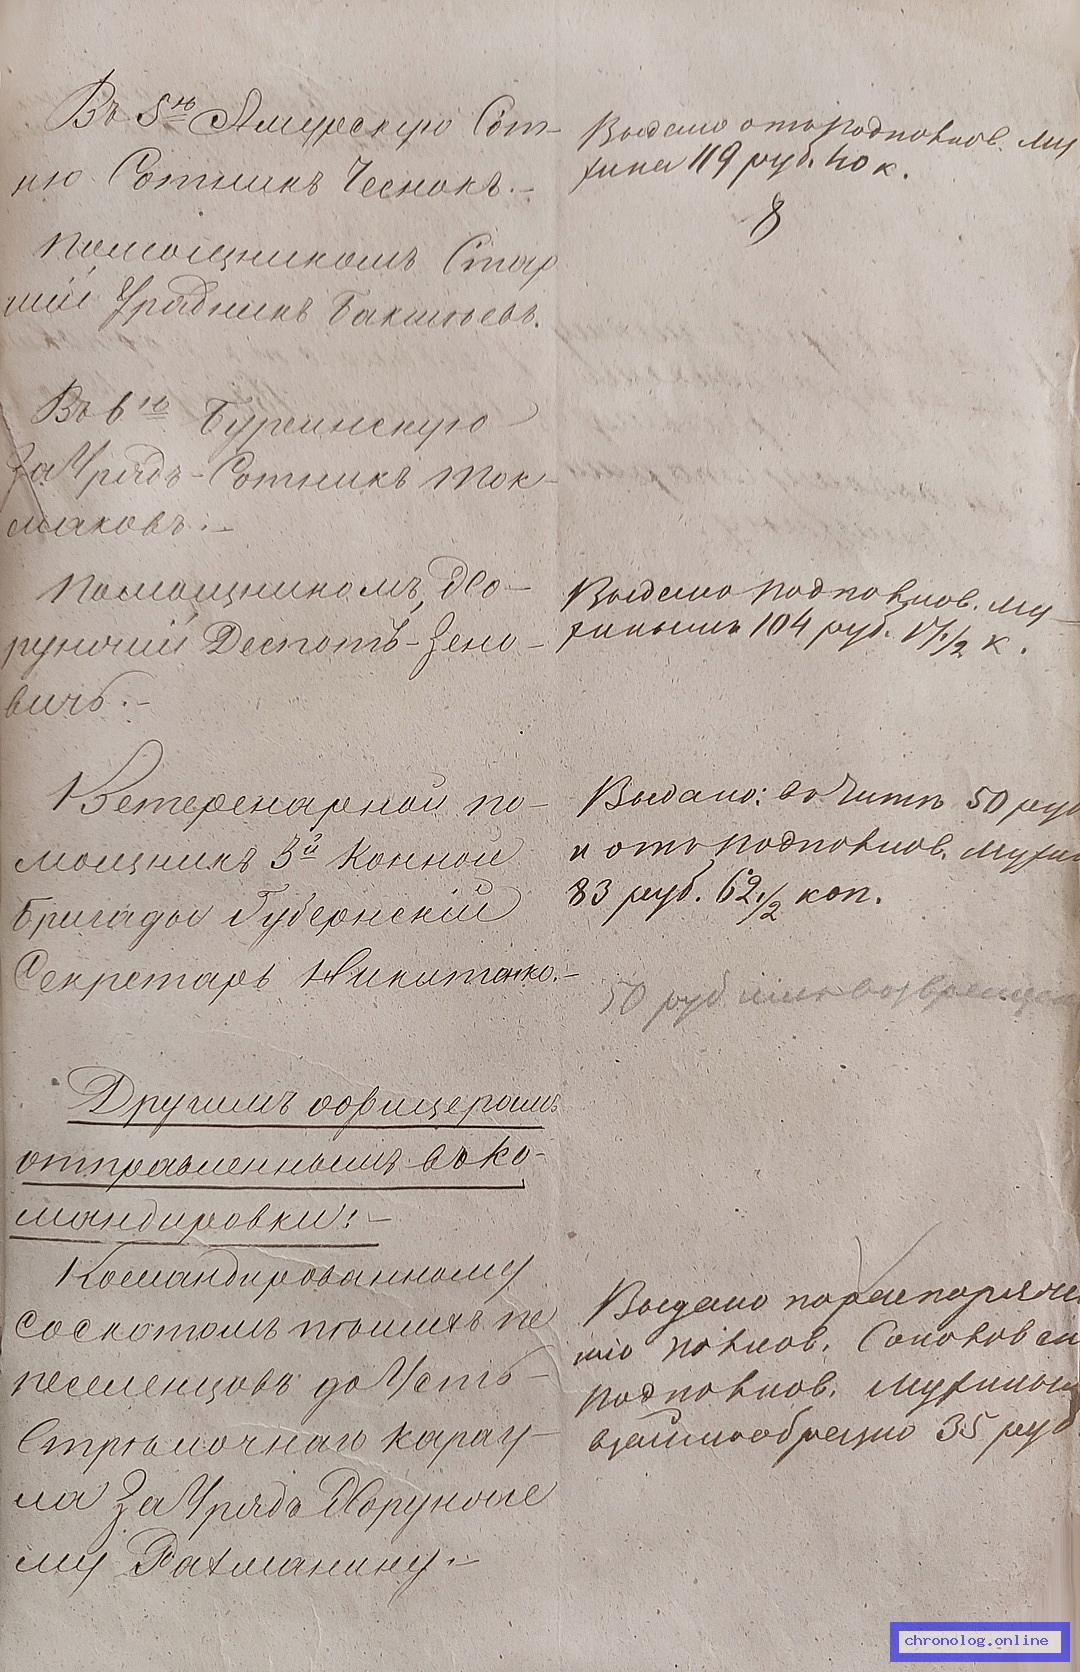 Въ 5ю Амурскую Сот-
ню Сотникъ Чеснокъ.-
Помощникомъ Стар
шій Урядникъ Бакшѣевъ.
Въ 6ю Буреинскую
За Урядъ-Сотникъ Ток-
маковъ.-
Помощникомъ, Хо-
рунжій Деспотъ-Зено-
вичъ.-
Ветеренарной по-
мощникъ 3й Конной
бригады Губернскій
Секретарь Никитенко.-
Другимъ офицерамъ
отправленнымъ въ ко-
мандировки:-
Командированному
со скотомъ пѣшихъ пе
реселенцовъ до Усть-
Стрѣлочнаго карау-
ла За Урядъ Хорунже
му Рахманину.-
Выдано отъ подполков. Му
хина 119 руб. 40 к.
Выдано подполков. Му-
хинымъ 104 руб. 17 1/2 к.
Выдано: въ Читѣ 50 руб
и отъ подполков. Мухи
83 руб. 62 1/2 коп.
50 руб
Выдано по распоряже
нію полков.
подполков. Мухиным
заимообразно 35 руб.
chronolog.online